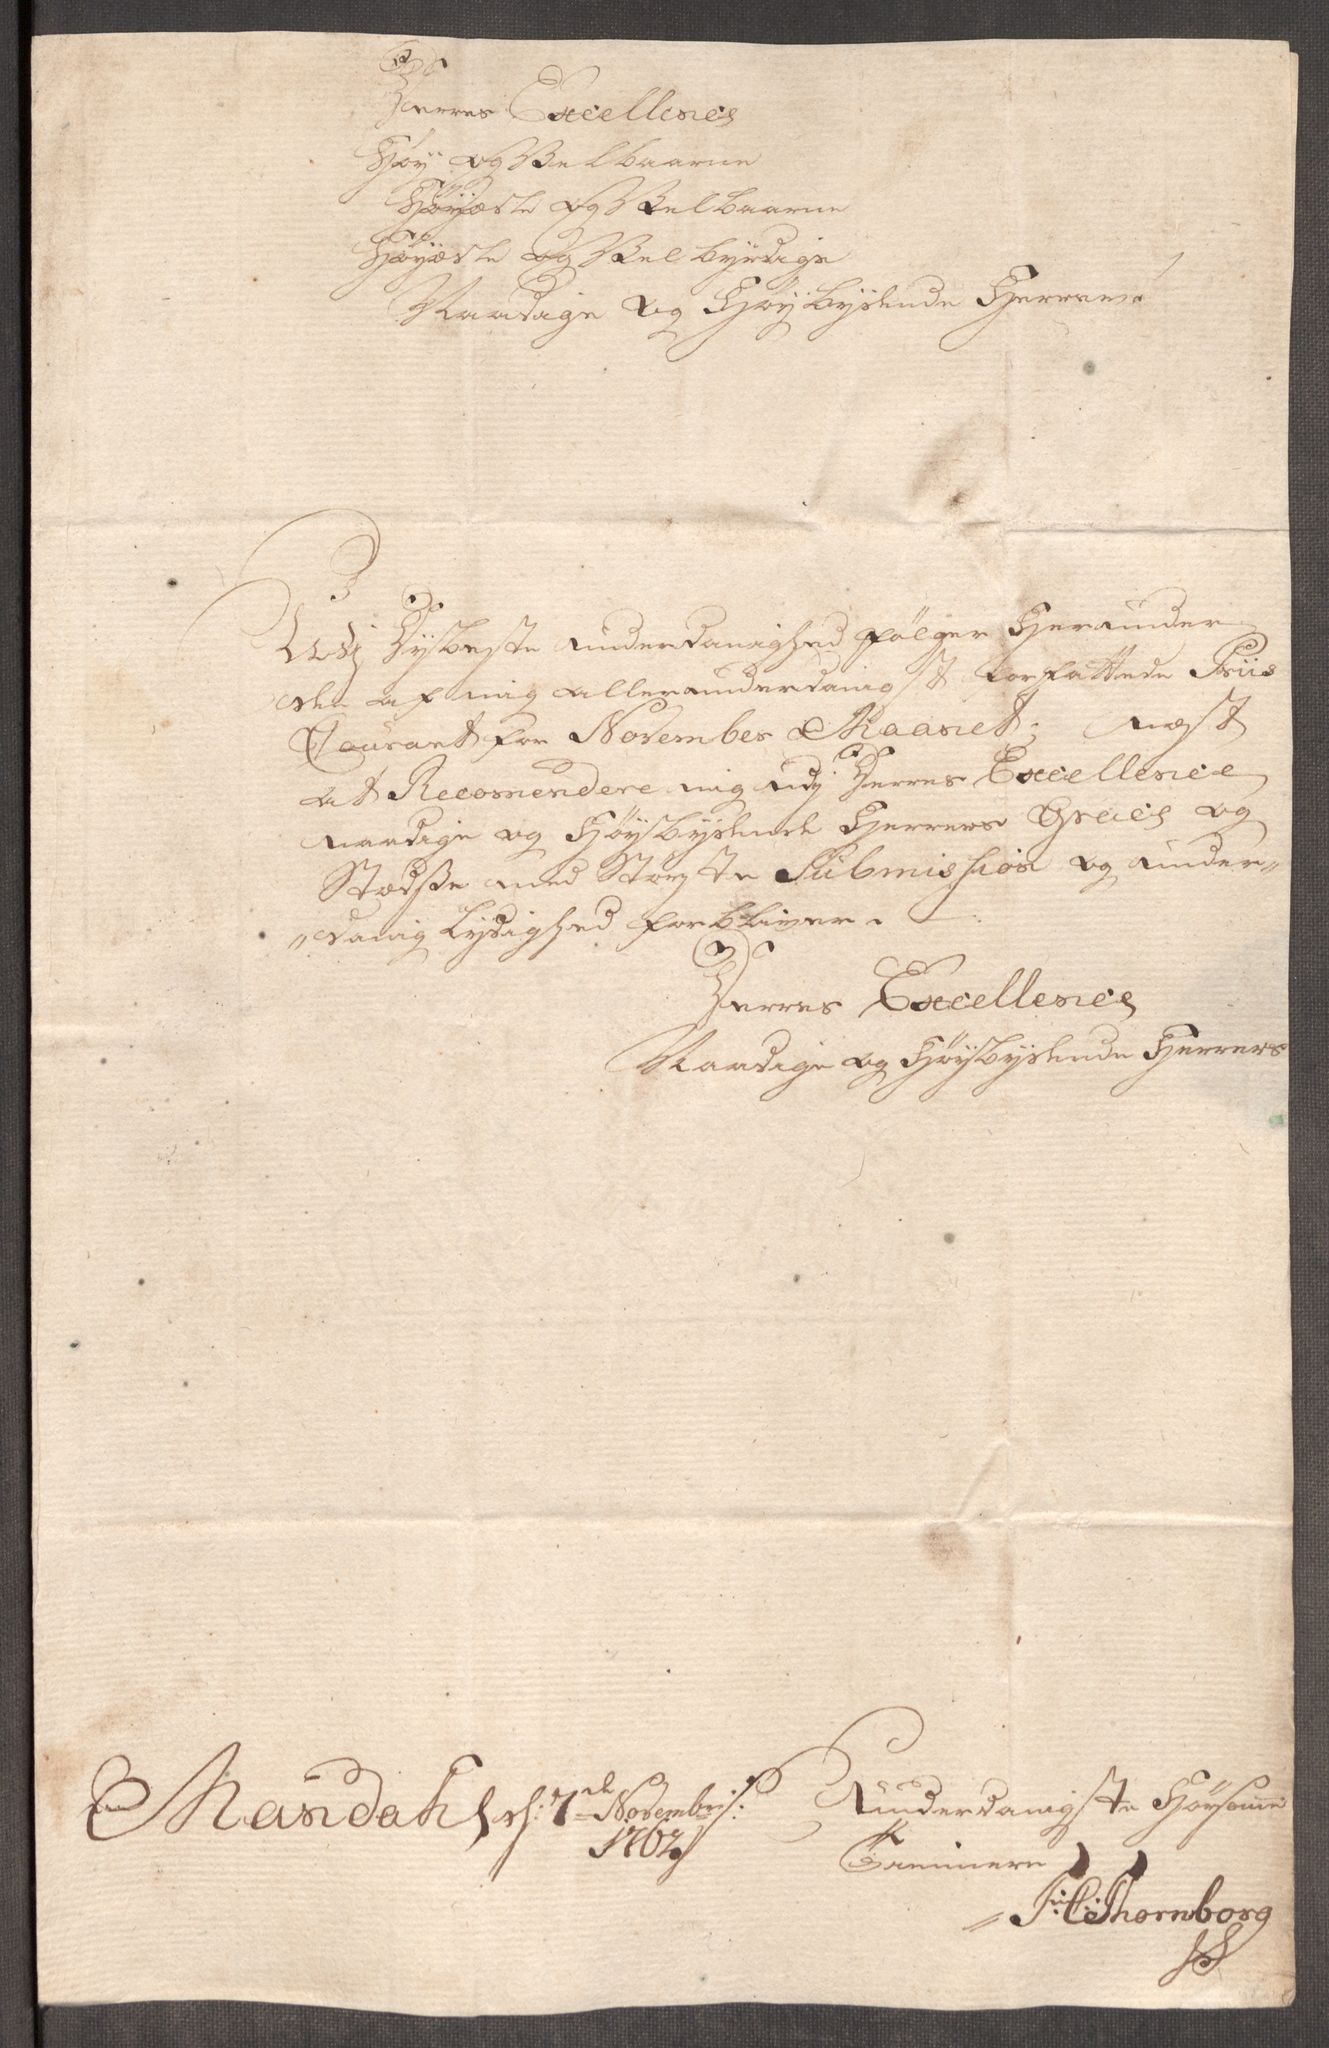 Deres Excellence
Høy og Velbaarne
Høyædle og Velbaarne
Høyædle og Velbyrdige
Naadige og Høybydende Herrer
Udj Dybeste underdanighed følger herunder
den af mig allerunderdanigst forfattede Priis
Courant for November Maanet; næst
at Recomendere mig udj Deres Excellence
naadige og Høybydende Herrers Grace og
Stædsse med Største Submission og under„
„danig Lydighed forbliver.
Deres Excellence
Naadige og Høybydende Herrers
Mandahl d: 7de Novembris:
1762
underdanigste Hørsomme
Tiennere
F: C: Thornborg